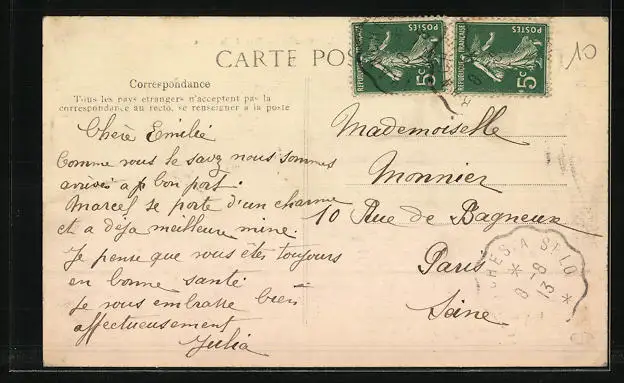 CARTE POS
Correspondance
Tous les pays étrangers n'acceptent pas la
correspondance au recto, se renseigner à la poste
Chère Emilie
Comme vous le savez nous sommes
arrivés a bon port.
Marcel se porte d'un charme
et a déja meilleure mine.
Je pense que vous êtes toujours
en bonne santé
Je vous embrasse bien
affectueusement
Julia
REPUBLIQUE FRANÇAISE
POSTES
5c
REPUBLIQUE FRANÇAISE
POSTES
5c
10
Mademoiselle
Monnier
10 Rue de Bagneux
Paris
Seine
CHES A ST LO
8-8
13